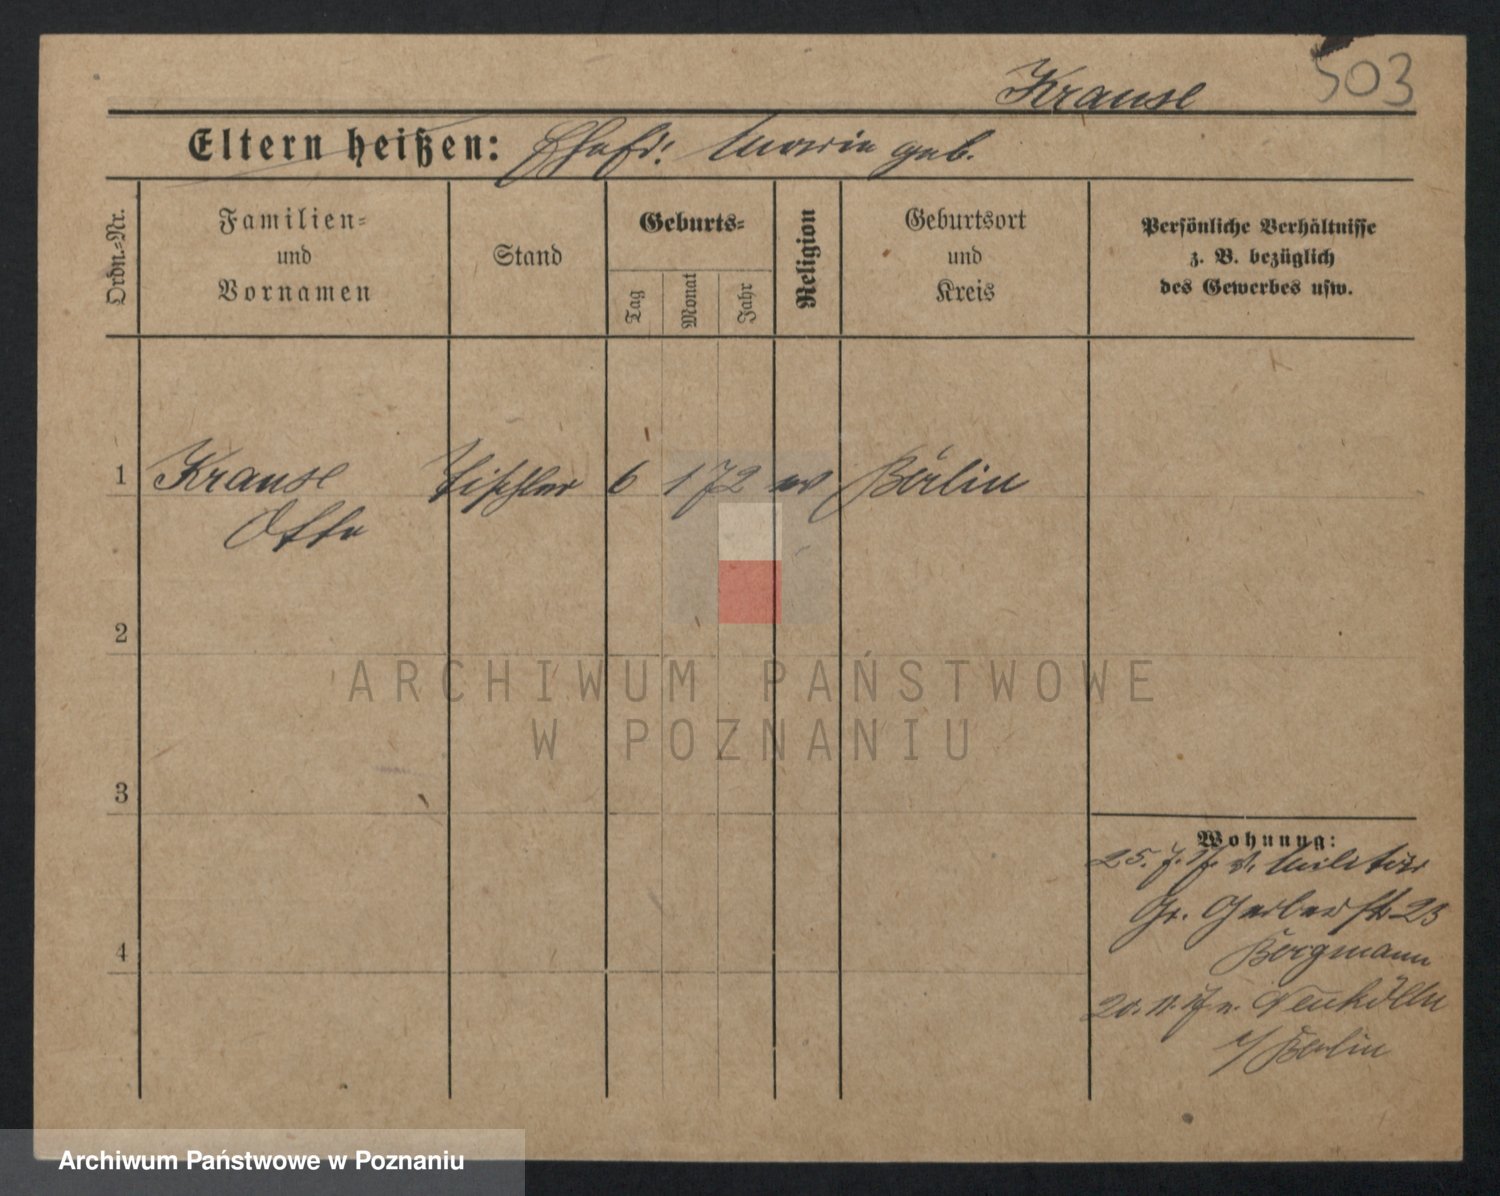 503
Krause
Eltern heißen: Ehefr: Maria geb.
Ordn.-Nr.
Familien-
und
Vornamen
Stand
Geburts-
Tag
Monat
Jahr
Religion
Geburtsort
und
Kreis
Persönliche Verhältnisse
z. B. bezüglich
des Gewerbes usw.
1 Krause Tischler 6 1 72 ev Berlin
Otto
2
3
4
Wohnung:
25. 7. 17. v. Militär
Gr. Gerberstr 23
Bergmann
20. 11. 17 n. Neukölln
b/ Berlin
ARCHIWUM PAŃSTWOWE
W POZNANIU
Archiwum Państwowe w Poznaniu